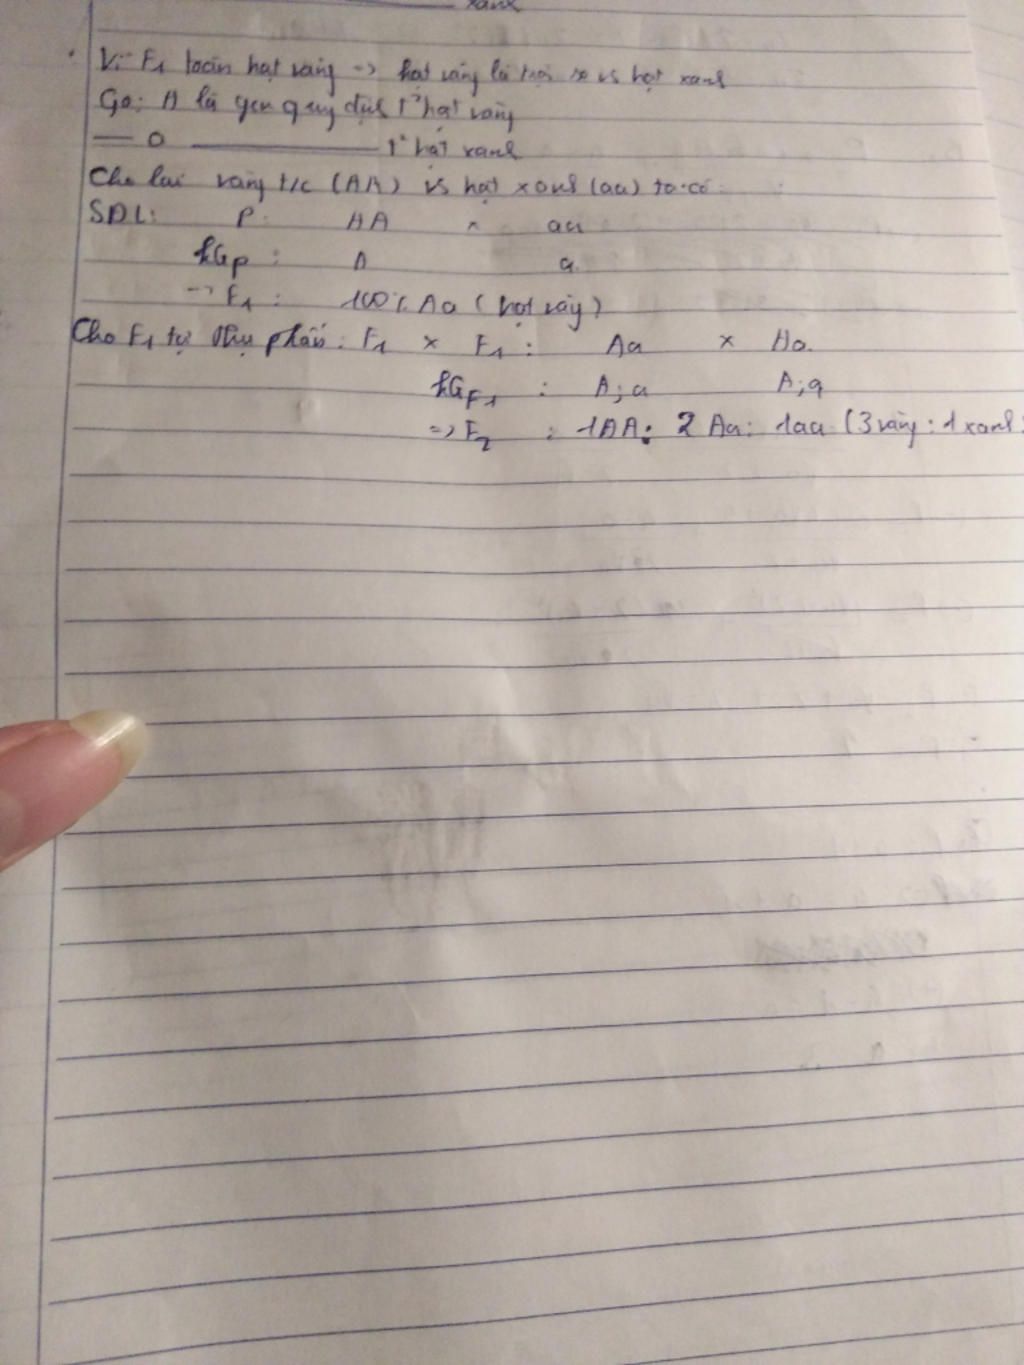 xanh
Vì F1 toàn hạt vàng -> hạt vàng là trội so vs hạt xanh
Gọi: A là gen quy định t² hạt vàng
— a ——— t² hạt xanh
Cho lai vàng t/c (AA) vs hạt xanh (aa) ta có:
SĐL: P: AA x aa
kGp : A a
-> F1 : 100% Aa (hạt vàg)
Cho F1 tự thụ phấn: F1 x F1 : Aa x Aa
kGF1 : A;a A;a
=> F2 : 1AA: 2 Aa: 1aa (3 vàng : 1 xanh)